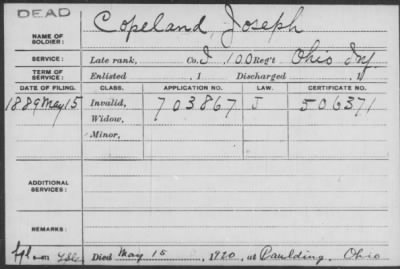 DEAD
NAME OF SOLDIER: Copeland, Joseph
SERVICE: Late rank, Co. I, 100 Reg't Ohio Inf.
TERM OF SERVICE: Enlisted , 1 Discharged , 1
DATE OF FILING. CLASS. APPLICATION NO. LAW. CERTIFICATE NO.
1889 May 15 Invalid, 703867 J 506371
Widow,
Minor,
ADDITIONAL SERVICES:
REMARKS:
Died May 15, 1920, at Paulding, Ohio